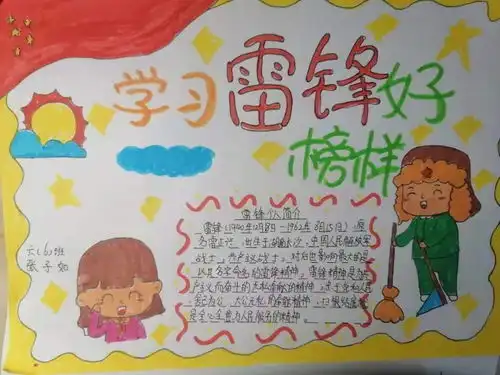 学习雷锋好
榜样
六(6)班
张子如
雷锋个人简介
雷锋(1940年12月18日-1962年8月15日),原
名雷正兴,出生于湖南长沙,中国人民解放军
战士,共产主义战士,对后世影响最大的是
以其名字命名的雷锋精神,雷锋精神是为共
产主义而奋斗的无私奉献的精神;忠于党和人民,
舍己为公、大公无私的奉献精神;
是全心全意为人民服务的精神。